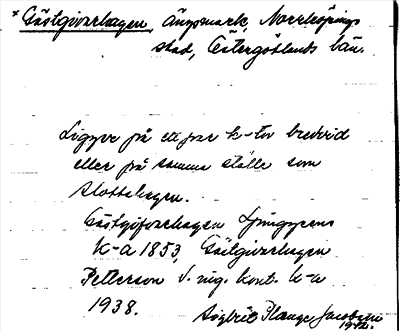 * Gästgivarhagen, Ängsmark, Norrköpings
stad, Östergötlands län.
Ligger på ett par k-tor bredvid
eller på samma ställe som
Slottshagen.
Gästgifvarhagen Ljunggrens
k-a 1853, Gästgivarhagen
Petterson o. ing. kont. k-a
1938.
Sigbrit Plaenge Jacobson